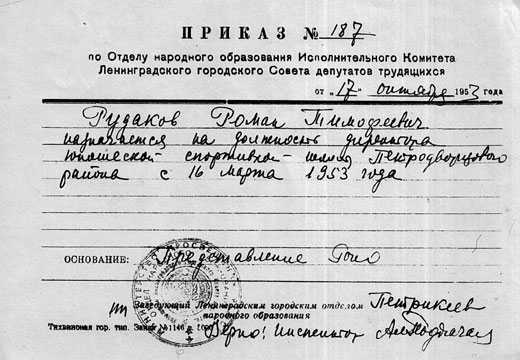 ПРИКАЗ № 187
по Отделу народного образования Исполнительного Комитета
Ленинградского городского Совета депутатов трудящихся
от „17" октября 1953 года
Рудаков Роман Тимофеевич
назначается на должность директора
юношеской спортивной школы Петродворцового
района с 16 марта 1953 года
ОСНОВАНИЕ: Представление Роно
пп Заведующий Ленинградским городским отделом Петрикеев
народного образования
Тихвинская гор. тип. Заказ № 1146
Верно: Инспектор